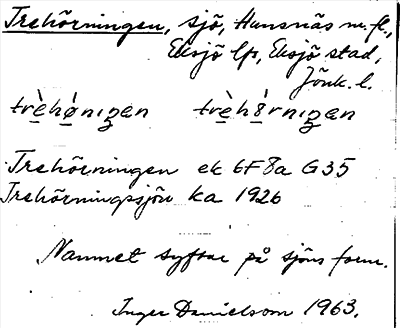 Trehörningen, sjö, Hunsnäs m.fl.,
Eksjö lfs, Eksjö stad,
Jönk. l.
trèhø̀nıŋen trèhö̀rnıŋen
Trehörningen ek 6F8a G35
Trehörningsjön ka 1926
Namnet syftar på sjöns form.
Inger Danielsson 1963.